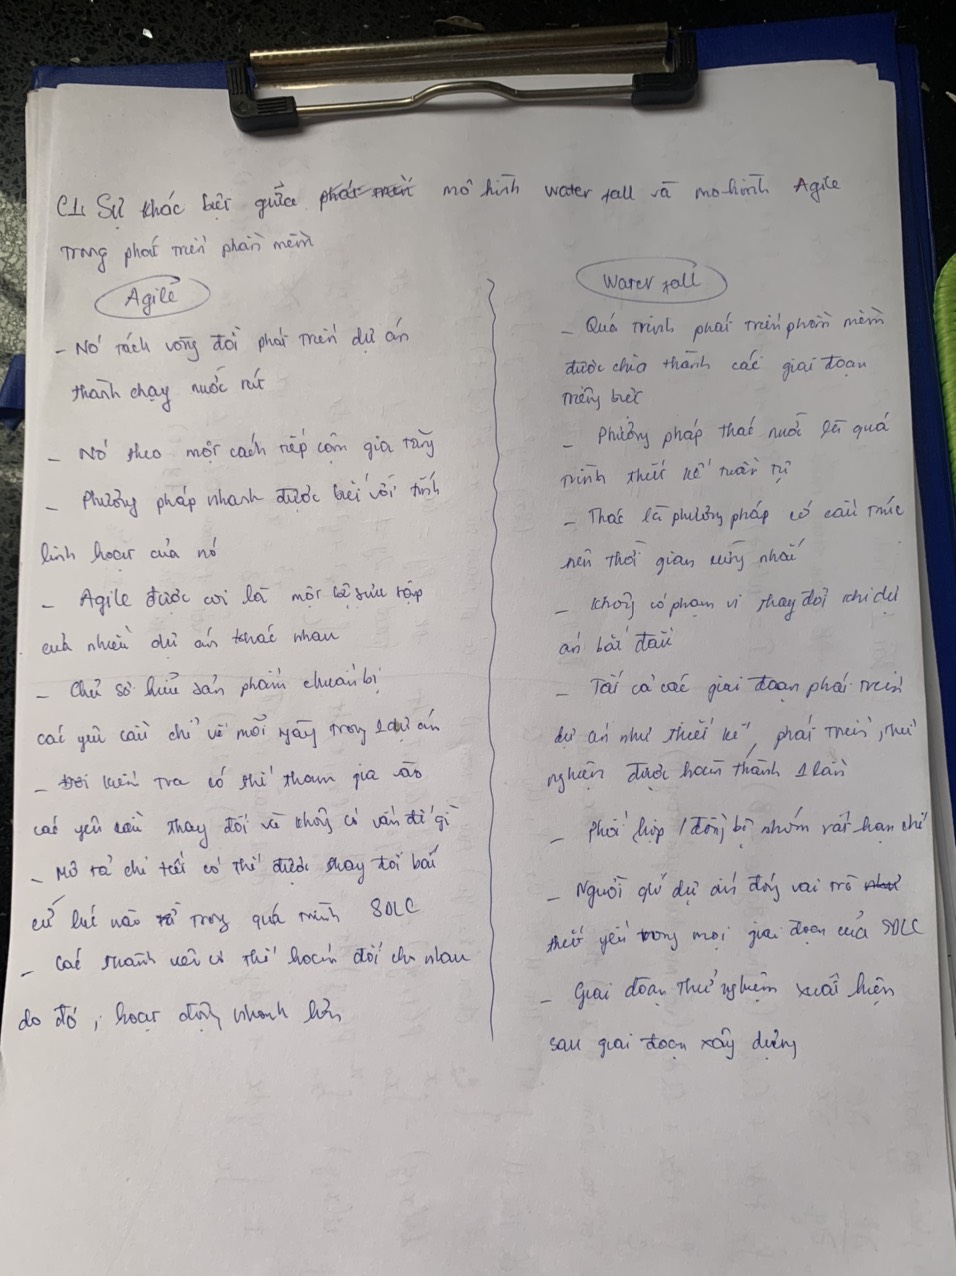 C1, Sự khác biệt giữa phát triển mô hình water fall và mô hình Agile
trong phát triển phần mềm
Agile
- Nó tách vòng đời phát triển dự án
thành chạy nước rút
- Nó theo một cách tiếp cận gia tăng
- Phương pháp nhanh được biết với tính
linh hoạt của nó
- Agile được coi là một bộ sưu tập
của nhiều dự án khác nhau
- Chủ sở hữu sản phẩm chuẩn bị
các yêu cầu chỉ về mỗi ngày trong 1 dự án
- Đội kiểm tra có thể tham gia vào
các yêu cầu thay đổi và không có vấn đề gì
- Mô tả chi tiết có thể được thay đổi bất
cứ lúc nào trong quá trình SDLC
- Các thành viên có thể hoán đổi cho nhau
do đó, hoạt động nhanh hơn
Water fall
- Quá trình phát triển phần mềm
được chia thành các giai đoạn
riêng biệt
- Phương pháp thác nước là quá
trình thiết kế tuần tự
- Thác là phương pháp có cấu trúc
nên thời gian cứng nhắc
- Không có phạm vi thay đổi khi dự
án bắt đầu
- Tất cả các giai đoạn phát triển
dự án như thiết kế, phát triển, thử
nghiệm được hoàn thành 1 lần
- Phối hợp / đồng bộ nhóm rất hạn chế
- Người qlí dự án đóng vai trò như
thiết yếu trong mọi giai đoạn của SDLC
- Giai đoạn thử nghiệm xuất hiện
sau giai đoạn xây dựng